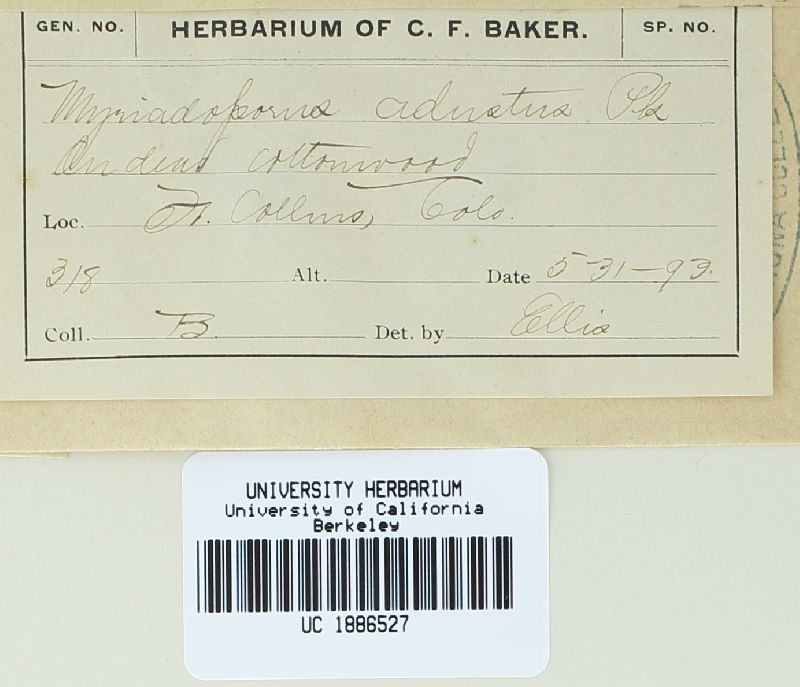 GEN. NO. HERBARIUM OF C. F. BAKER. SP. NO.
Myriadoporus adustus Pk
On dead cottonwood
Loc. Ft. Collins, Colo.
318 Alt. Date 5-31-93.
Coll. B. Det. by Ellis
UNIVERSITY HERBARIUM
University of California
Berkeley
UC 1886527